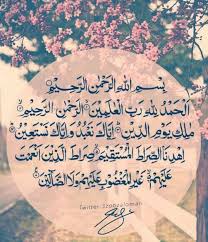 بِسْمِ اللهِ الرَّحْمٰنِ الرَّحِيْمِ
اَلْحَمْدُ لِلّٰهِ رَبِّ الْعٰلَمِيْنَ ۞ الرَّحْمٰنِ الرَّحِيْمِ ۞
مٰلِكِ يَوْمِ الدِّيْنِ ۞ اِيَّاكَ نَعْبُدُ وَاِيَّاكَ نَسْتَعِيْنُ ۞
اِهْدِنَا الصِّرَاطَ الْمُسْتَقِيْمَ ۞ صِرَاطَ الَّذِيْنَ اَنْعَمْتَ
عَلَيْهِمْ ۞ غَيْرِ الْمَغْضُوْبِ عَلَيْهِمْ وَلَا الضَّآلِّيْنَ ۞